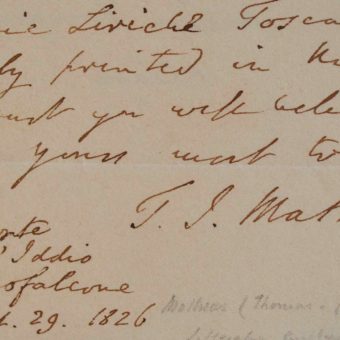 ie Liriche Tosca
ly printed in
ust you will bele
yours most t
T. J. Mat
nte
' Iddio
ofalcone
t. 29. 1826
Mathews (Thomas